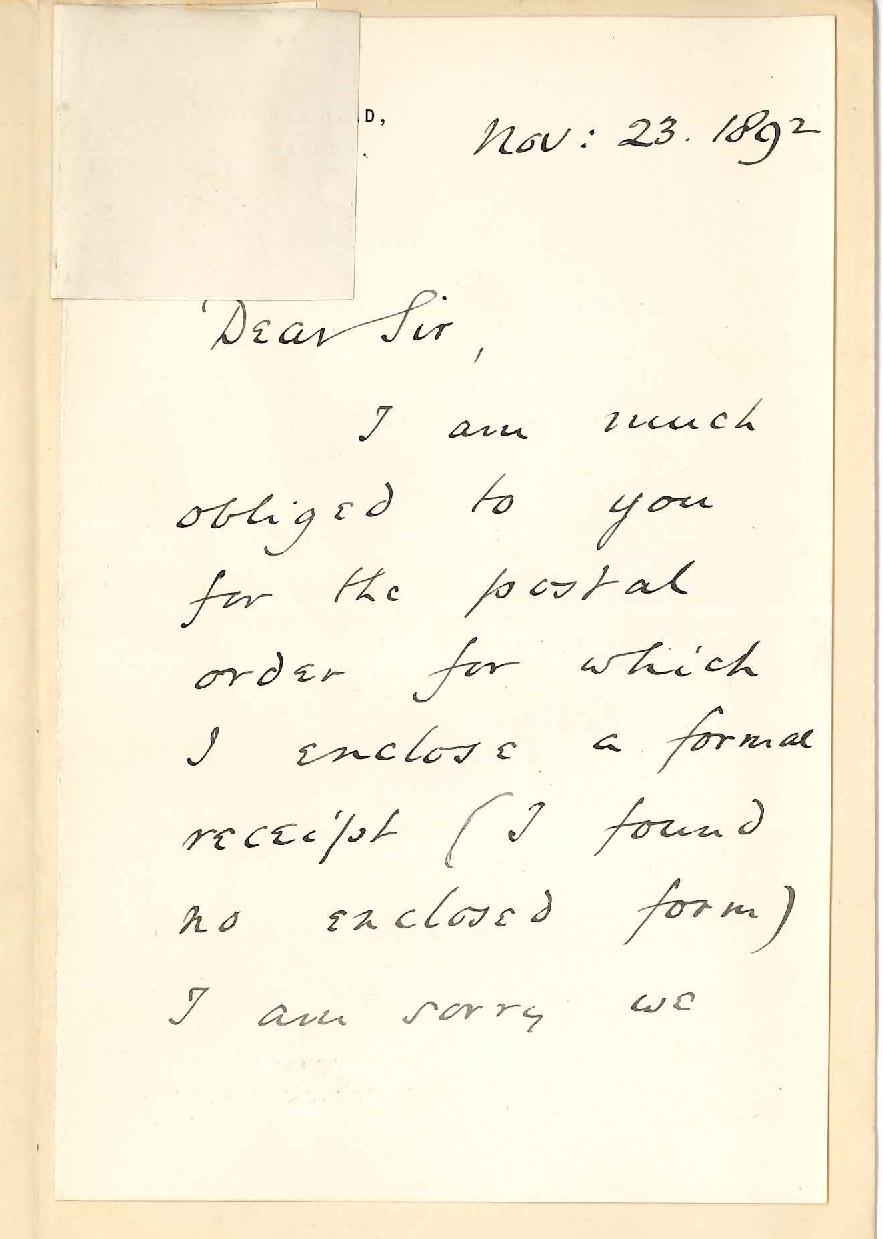 D,
.
Nov: 23. 1892
Dear Sir,
I am much
obliged to you
for the postal
order for which
I enclose a formal
receipt (I found
no enclosed form)
I am sorry we